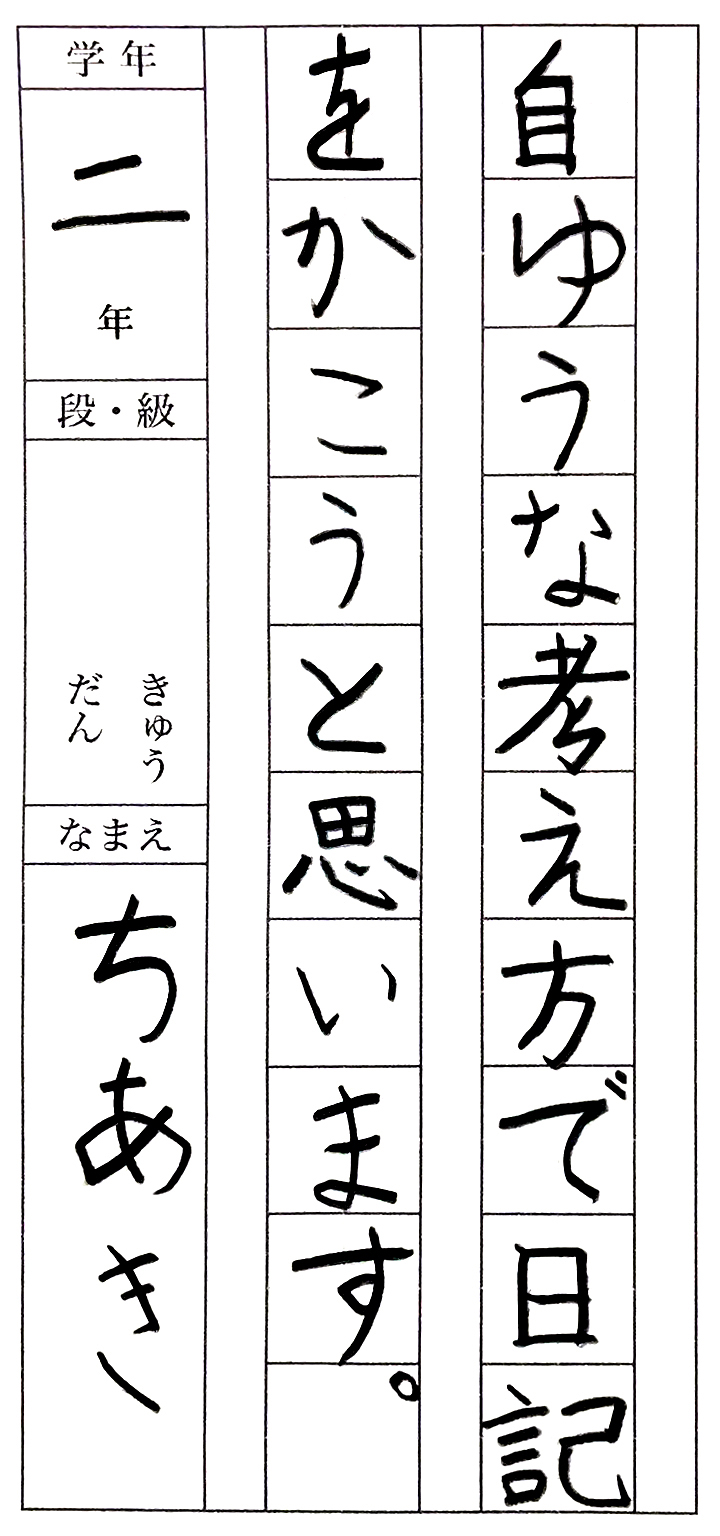 自ゆうな考え方で日記
をかこうと思います。
学年
二
年
段・級
きゅう
だん
なまえ
ちあき